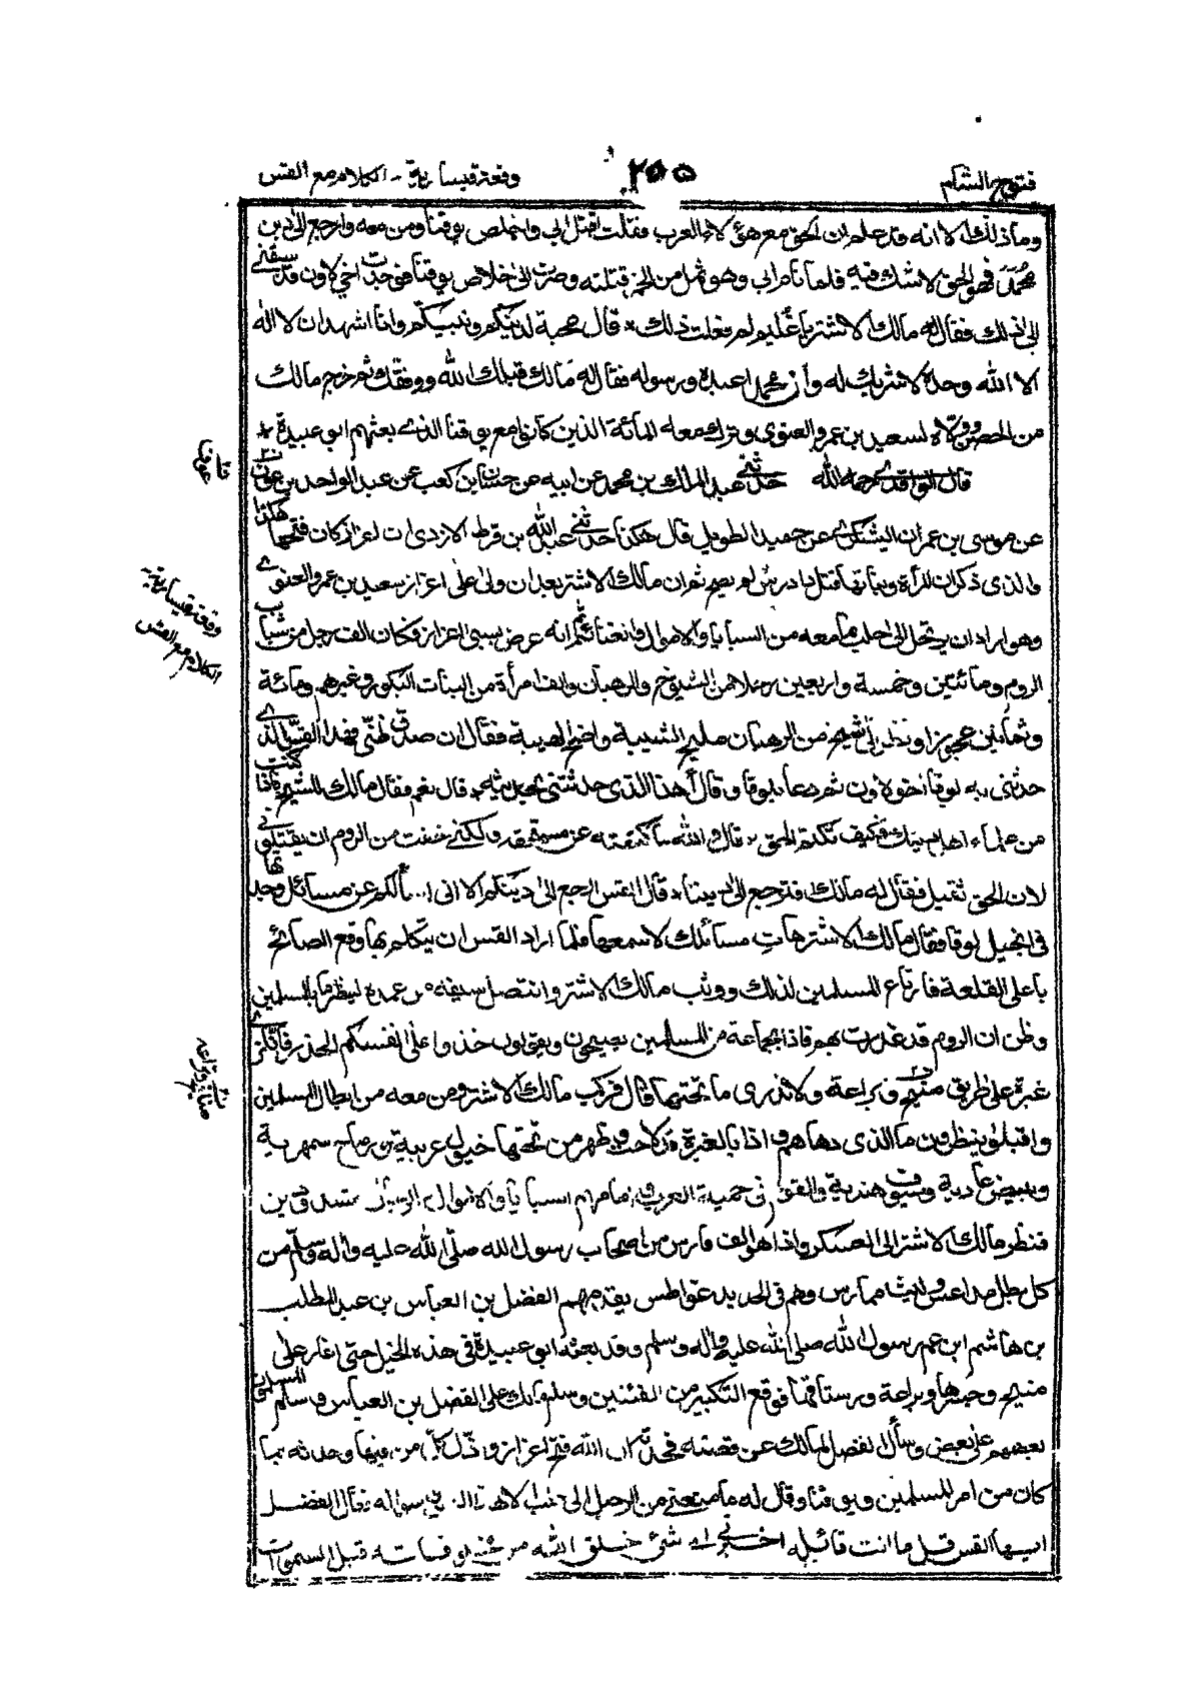 فتوح الشام
٢٥٥
وقعة قيسارية - الكلام مع القس
وما ذلك الا انه قد علم ان الحق مع هؤلاء العرب فقلت اقتل ابي واخلص يوقنا ومن معه وارجع الى دين
محمد فهو الحق لا شك فيه فلما نام ابي وهو ثمل من الخمر قتلته وصرت الى خلاص يوقنا فوجدت اخي لاون قد سبقني
الى ذلك فقال له مالك الاشتر يا غليم لم فعلت ذلك * قال محبة لدينكم ونبيكم وانا اشهد ان لا اله
الا الله وحده لا شريك له وان محمدا عبده ورسوله فقال له مالك قبلك الله ووفقك ثم خرج مالك
من الحصن وولاه لسعيد بن عمرو الغنوي وترك معه المائة الذين كانوا مع يوقنا الذي بعثهم ابو عبيدة *
قال الواقدي رحمه الله حدثني عبد الملك بن محمد عن ابيه عن حسان بن كعب عن عبد الواحد بن عون
عن موسى بن عمران اليشكري عن حميد الطويل قال هكذا حدثني عبد الله بن قرط الازدي ان اعزاز كان فتحها هكذا
والذي ذكر ان المرأة وبناتها قتل دادرس لم يصح ثم ان مالك الاشتر بعد ان ولى على اعزاز سعيد بن عمرو الغنوي
وهو اراد ان يرتحل الى حلب بما معه من السبايا والاموال والغنائم ثم انه عرض سبي اعزاز فكان الف رجل من شباب
الروم ومائتين وخمسة واربعين رجلا من الشيوخ والرهبان والف امرأة من البنات البكور وغيرهم ومائة
وثمانين عجوزا ونظر الى شيخ من الرهبان مليح الشيبة واضح الهيبة فقال ان صدق ظني فهذا القس الذي
حدثني به لوقا اخو لاون ثم دعا بلوقا وقال أهذا الذي حدثتني بحديثه * قال نعم فقال مالك للشيخ فاذا كنت
من علماء اهل دينك فكيف تكتم الحق * قال والله ما كتمته عن مستحقه ولكني خفت من الروم ان يقتلوني
لان الحق ثقيل فقال له مالك فترجع الى ديننا * قال القس ارجع الى دينكم الا اني اسألكم عن مسائل وجدتها
في انجيل لوقا فقال مالك الاشتر هات مسائلك لاسمعها فلما اراد القس ان يتكلم بها وقع الصائح
باعلى القلعة فارتاع المسلمين لذلك ووثب مالك الاشتر وانتصل سيفه من غمده لينظر ما بالمسلمين
وظن ان الروم قد غدرت بهم فاذا بجماعة من المسلمين يصيحون ويقولون خذوا على انفسكم الحذر فانا نرى
غبرة على طريق منبج وبراعة ولا ندري ما تحتها قال فركب مالك الاشتر ومن معه من ابطال المسلمين
واقبلوا ينظرون ما الذي دهاهم واذا بالغبرة قد لاحت وظهر من تحتها خيول عربية ورماح سمهرية
وبيض عادية وسيوف هندية والقوم في حمية العرب وامامهم السبايا والاموال
فنظر مالك الاشتر الى العسكر واذا هو الف فارس من اصحاب رسول الله صلى الله عليه وآله وسلم من
كل بطل مداعس وليث ممارس وهم في الحديد غواطس يقدمهم الفضل بن العباس بن عبد المطلب
بن هاشم ابن عم رسول الله صلى الله عليه وآله وسلم وقد بعثه ابو عبيدة في هذه الخيل حتى اغار على
منبج وجسرها وبراعة ورستاقها فوقع التكبير من الفئتين وسلم مالك على الفضل بن العباس وسلم المسلمون
بعضهم على بعض وسأل الفضل المالك عن قصته فحدثه ان الله فتح اعزاز من فيها وحدثه بما
كان من امر المسلمين ويوقنا وقال له ما منعني من الرحيل الى حلب الا هذا القس سؤاله فقال الفضل
ايها القس قل ما انت قائل اخبرني اي شيء خلق الله من مخلوقاته قبل السموات
فانه عوف
وقعة قيسارية
الكلام مع القس